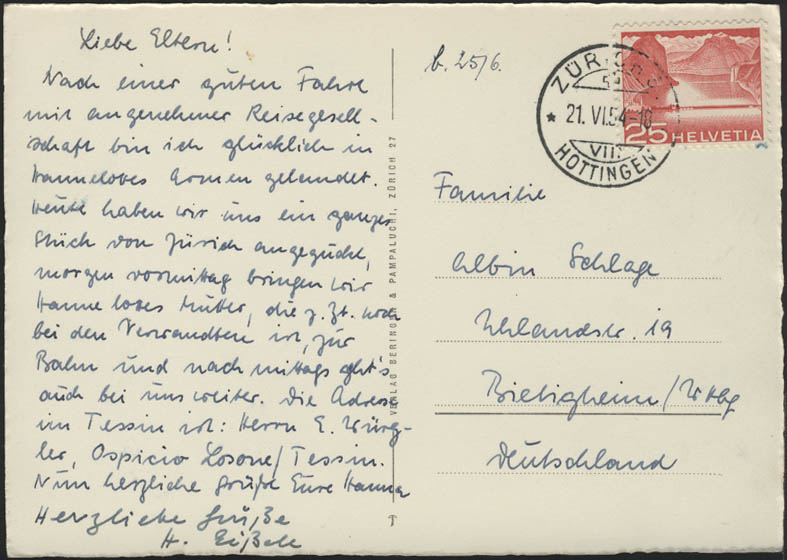 Liebe Eltern!
Nach einer guten Fahrt
mit angenehmer Reisegesell-
schaft bin ich glücklich in
Hannelores Armen gelandet.
Heute haben wir uns ein ganzes
Stück von Zürich angeguckt,
morgen vormittag bringen wir
Hannelores Mutter, die z. Zt. noch
bei den Verwandten ist, zur
Bahn und nachmittags geht's
auch bei uns weiter. Die Adresse
im Tessin ist: Herrn E. Würg-
ler, Ospicio Losone/Tessin.
Nun herzliche Grüße Eure Hanna
Herzliche Grüße
H.
VERLAG BERINGER & PAMPALUCHI, ZÜRICH 27
b. 25/6.
ZÜRICH
21. VI. 54-18
VIII
HOTTINGEN
25 HELVETIA
Familie
Albin Schlage
Uhlandstr. 19
Bietigheim/Wttbg
Deutschland